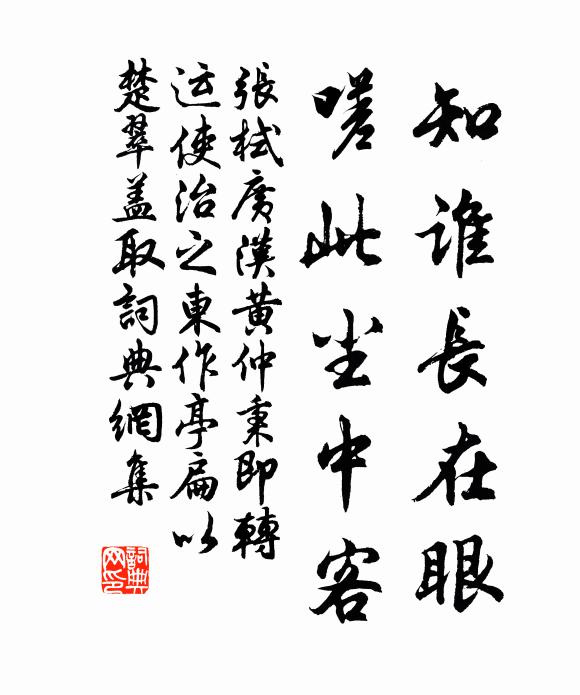 知谁長在眼
嗟此尘中客
張栻廣漢黄仲秉即轉
运使治之東作亭扁以
楚翠盖取詞典網集
詞典网印